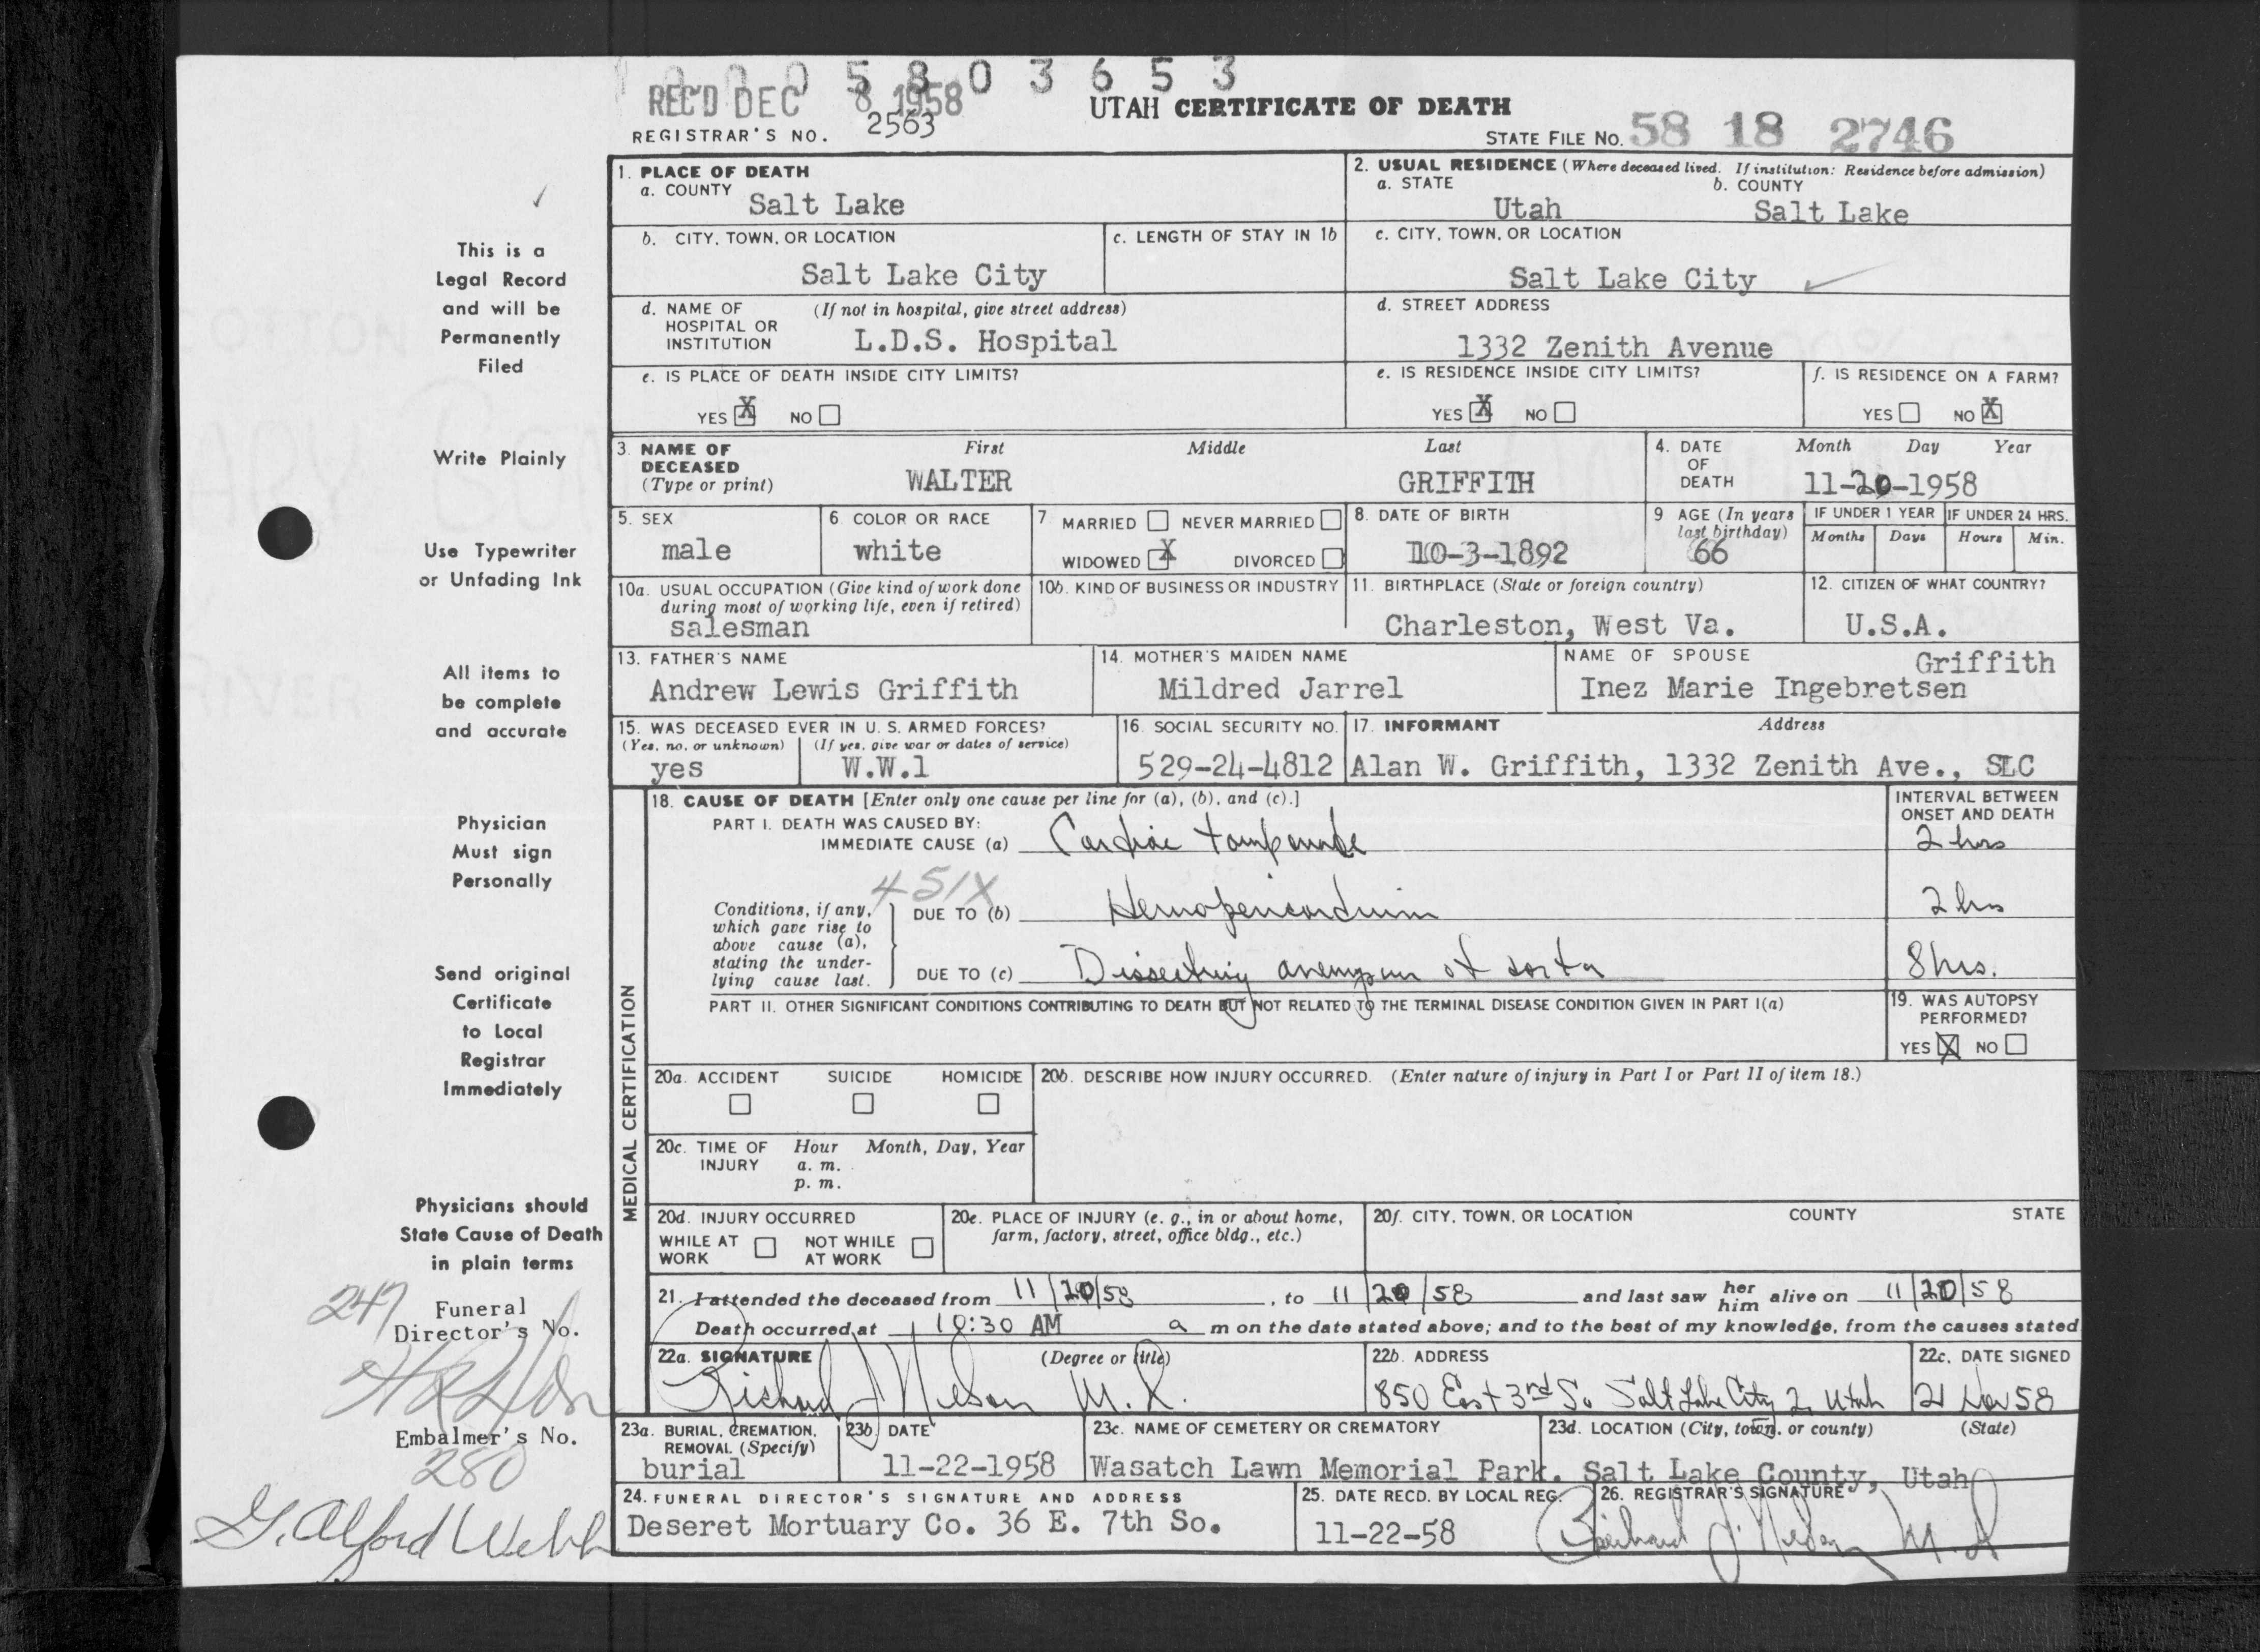 1 0 0 0 5 8 0 3 6 5 3
REC'D DEC 8 1958
UTAH CERTIFICATE OF DEATH
REGISTRAR'S NO. 2563
STATE FILE NO. 58 18 2746
1. PLACE OF DEATH
a. COUNTY
Salt Lake
2. USUAL RESIDENCE (Where deceased lived. If institution: Residence before admission)
a. STATE b. COUNTY
Utah Salt Lake
b. CITY, TOWN, OR LOCATION
Salt Lake City
c. LENGTH OF STAY IN 1b
c. CITY, TOWN, OR LOCATION
Salt Lake City
d. NAME OF HOSPITAL OR INSTITUTION (If not in hospital, give street address)
L.D.S. Hospital
d. STREET ADDRESS
1332 Zenith Avenue
e. IS PLACE OF DEATH INSIDE CITY LIMITS?
YES X NO
e. IS RESIDENCE INSIDE CITY LIMITS?
YES X NO
f. IS RESIDENCE ON A FARM?
YES NO X
3. NAME OF DECEASED (Type or print)
First Middle Last
WALTER GRIFFITH
4. DATE OF DEATH
Month Day Year
11-20-1958
5. SEX
male
6. COLOR OR RACE
white
7. MARRIED NEVER MARRIED
WIDOWED X DIVORCED
8. DATE OF BIRTH
10-3-1892
9 AGE (In years last birthday)
66
IF UNDER 1 YEAR
Months Days
IF UNDER 24 HRS.
Hours Min.
10a. USUAL OCCUPATION (Give kind of work done
during most of working life, even if retired)
salesman
10b. KIND OF BUSINESS OR INDUSTRY
11. BIRTHPLACE (State or foreign country)
Charleston, West Va.
12. CITIZEN OF WHAT COUNTRY?
U.S.A.
13. FATHER'S NAME
Andrew Lewis Griffith
14. MOTHER'S MAIDEN NAME
Mildred Jarrel
NAME OF SPOUSE
Griffith
Inez Marie Ingebretsen
15. WAS DECEASED EVER IN U. S. ARMED FORCES?
(Yes, no, or unknown) (If yes, give war or dates of service)
yes W.W.1
16. SOCIAL SECURITY NO.
529-24-4812
17. INFORMANT Address
Alan W. Griffith, 1332 Zenith Ave., SLC
MEDICAL CERTIFICATION
18. CAUSE OF DEATH [Enter only one cause per line for (a), (b), and (c).]
INTERVAL BETWEEN
ONSET AND DEATH
PART I. DEATH WAS CAUSED BY:
IMMEDIATE CAUSE (a) Cardiac tamponade 2 hrs
451X
Conditions, if any,
which gave rise to
above cause (a),
stating the under-
lying cause last.
DUE TO (b) Hemopericardium 2 hrs
DUE TO (c) Dissecting aneurysm of aorta 8 hrs.
PART II. OTHER SIGNIFICANT CONDITIONS CONTRIBUTING TO DEATH BUT NOT RELATED TO THE TERMINAL DISEASE CONDITION GIVEN IN PART I(a)
19. WAS AUTOPSY
PERFORMED?
YES X NO
20a. ACCIDENT SUICIDE HOMICIDE
20b. DESCRIBE HOW INJURY OCCURRED. (Enter nature of injury in Part I or Part II of item 18.)
20c. TIME OF INJURY
Hour Month, Day, Year
a. m.
p. m.
20d. INJURY OCCURRED
WHILE AT WORK NOT WHILE AT WORK
20e. PLACE OF INJURY (e. g., in or about home,
farm, factory, street, office bldg., etc.)
20f. CITY, TOWN, OR LOCATION COUNTY STATE
21. I attended the deceased from 11/20/58, to 11/20/58 and last saw her him alive on 11/20/58
Death occurred at 10:30 AM a m on the date stated above; and to the best of my knowledge, from the causes stated
22a. SIGNATURE (Degree or title)
Richard J Nelson M.D.
22b. ADDRESS
850 East 3rd So Salt Lake City 2, Utah
22c. DATE SIGNED
21 Nov 58
23a. BURIAL, CREMATION,
REMOVAL (Specify)
burial
23b. DATE
11-22-1958
23c. NAME OF CEMETERY OR CREMATORY
Wasatch Lawn Memorial Park.
23d. LOCATION (City, town, or county) (State)
Salt Lake County, Utah
24. FUNERAL DIRECTOR'S SIGNATURE AND ADDRESS
Deseret Mortuary Co. 36 E. 7th So.
25. DATE RECD. BY LOCAL REG.
11-22-58
26. REGISTRAR'S SIGNATURE
M.D
This is a
Legal Record
and will be
Permanently
Filed
Write Plainly
Use Typewriter
or Unfading Ink
All items to
be complete
and accurate
Physician
Must sign
Personally
Send original
Certificate
to Local
Registrar
Immediately
Physicians should
State Cause of Death
in plain terms
247
Funeral
Director's No.
Embalmer's No.
280
G. Alford Webb